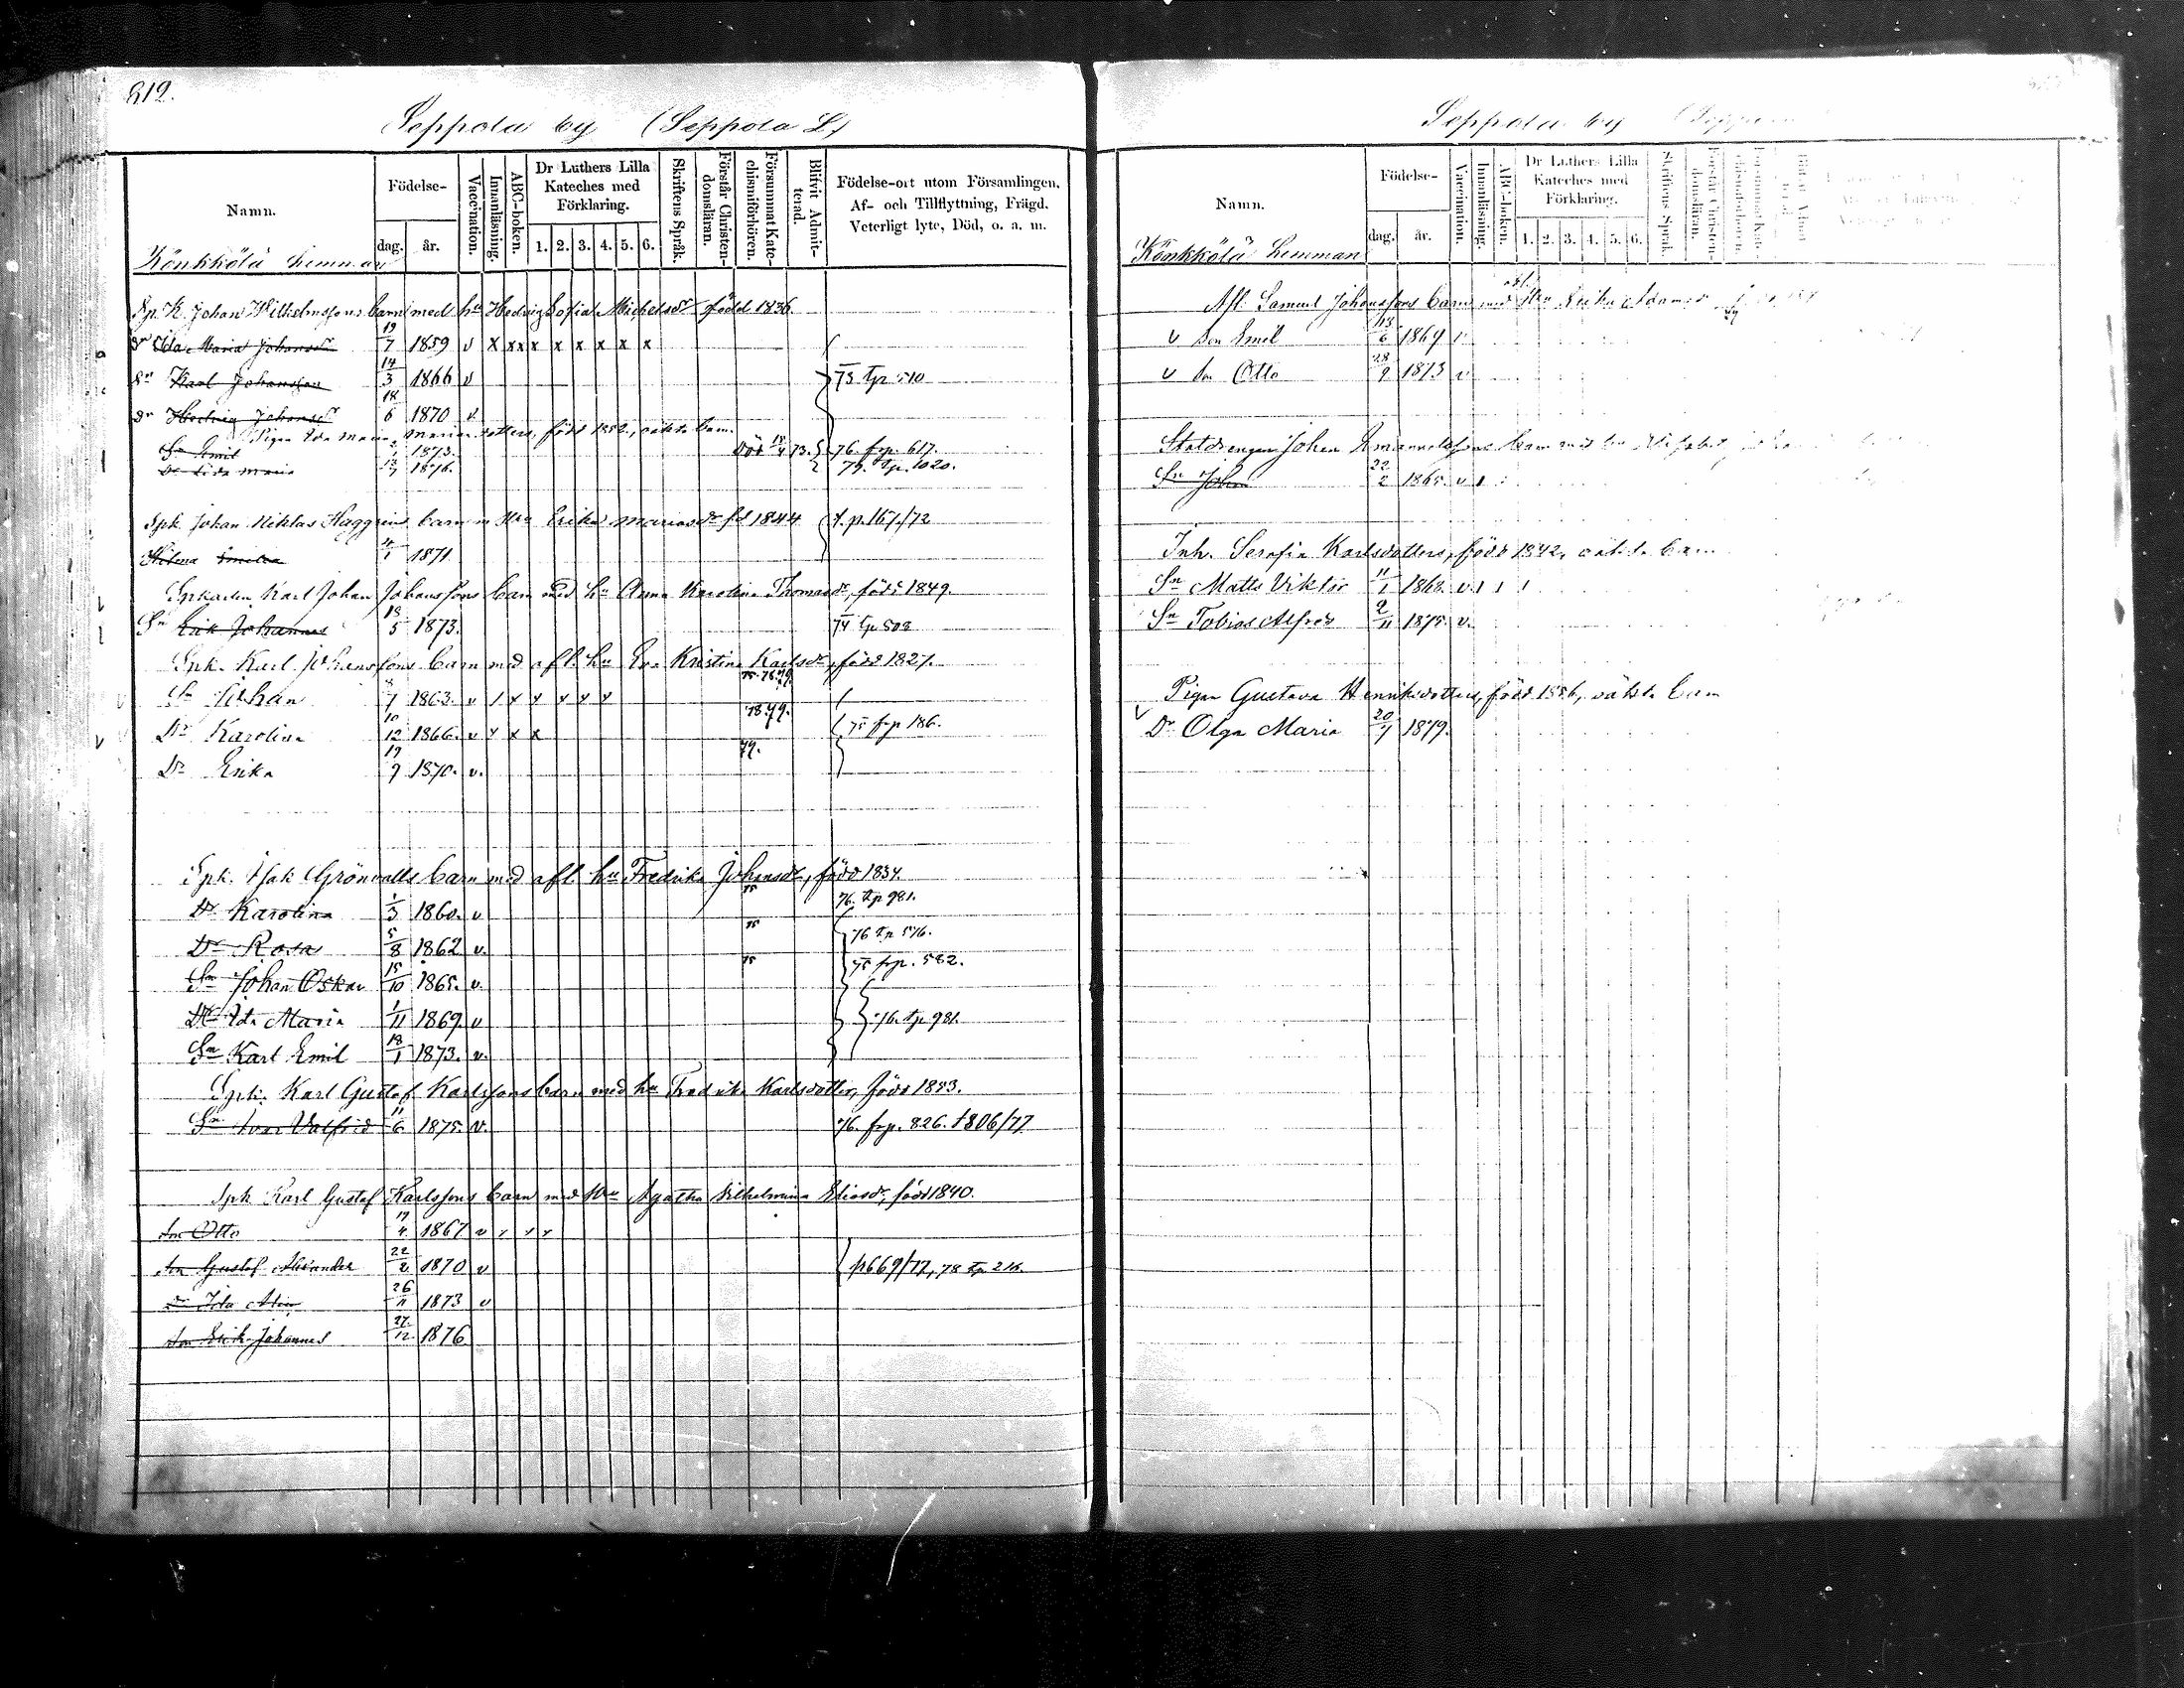 812.
Seppola by (Seppola L)
Namn.
Födelse-
dag.
år.
Vaccination.
Innanläsning.
ABC-boken.
Dr Luthers Lilla Kateches med Förklaring.
1. 2. 3. 4. 5. 6.
Skriftens Språk.
Förstår Christendomsläran.
Försummat Katechismiförhören.
Blifvit Admitterad.
Födelse-ort utom Församlingen, Af- och Tillflyttning, Frägd. Veterligt lyte, Död, o. a. m.
Könkkölä hemman
Sp. K. Johan Wilhelmssons barn med hu Hedvig Sofia Michelsdr född 1836
dr Ida Maria Johansdr 19/7 1859 v x xx x x x x x x
Sn Karl Johansson 14/3 1866 v 75 tp 510
dr Hedvig Johansdr 18/6 1870 v.
Pigan Eda Maria Mariasdotters, född 1852, oäkta barn.
Sn Emil 1873. Död 73. 76. frp. 617.
Dr Lida Maria 13/7 1876. 79. tp. 1020.
Spk Johan Niklas Häggrens barn m Hu Erika Mariasdr fd 1844 f. p. 167/72
Helena Emelia 4/1 1871.
Spkarlen Karl Johan Johanssons barn med hu Anna Karolina Thomasdr, född 1849.
Sn Erik Johannes 13/5 1873. 74 tp 503
Spk. Karl Johanssons barn med afl. hu Eva Kristina Karlsdr, född 1827.
Sn Johan 8/7 1863. v / x x x x x 75. 76. 79.
Dr Karolina 10/12 1866. v x x x 78. 79. 75 frp 186.
Dr Erika 19/9 1870. v. 79.
Spk. Isak Grönvalls barn med afl. hu Fredrika Johansdr, född 1834.
Dr Karolina 1/3 1860. v 75 76. tp 981.
Dr Rosa 5/8 1862 v. 75 76 tp 576.
Sn Johan Oskar 15/10 1865. v. 75 75 frp. 582.
Dr Ida Maria 1/11 1869. v 76. tp 981.
Sn Karl Emil 18/1 1873. v.
Spk. Karl Gustaf Karlssons barn med hu Fredrika Karlsdotter, född 1853.
Sn Ivar Valfrid 11/6 1875. v. 76. frp. 826. t 806/77
Spk Karl Gustaf Karlssons barn med Hu Agatha Vilhelmina Eliasdr, född 1840.
Son Otto 19/4 1867 v x x x
Son Gustaf Alexander 22/2 1870 v p 669/77, 78 tp 216.
Dr Ida Alin 26/11 1873 v
Son Erik Johannes 27/12 1876
Seppola by
Namn.
Födelse-
dag.
år.
Vaccination.
Innanläsning.
ABC-boken.
Dr Luthers Lilla Kateches med Förklaring.
1. 2. 3. 4. 5. 6.
Skriftens Språk.
Könkkölä hemman
Afl. Samuel Johanssons barn med afl. Hu Erika Adamsdr
v Son Emil 13/6 1869 v
v Son Otto 28/9 1873 v
Statdrengen Johan Emanuelssons barn med hu
Sn Johan 22/2 1865. v
Inh. Serafia Karlsdotters, född 1842, oäkta barn
Sn Matts Viktor 11/1 1868. v.
Sn Tobias Alfred 2/11 1875. v.
Pigan Gustava Henriksdotters, född 1856, oäkta barn
v Dr Olga Maria 20/7 1879.